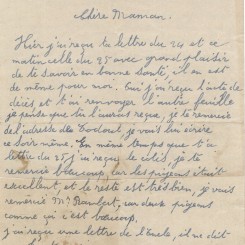 Chère Maman.
Hier j'ai reçu ta lettre du 24 et ce
matin celle du 25 avec grand plaisir
de te savoir en bonne santé, il en est
de même pour moi. Oui j'ai reçu l'acte de
décès et t'ai renvoyer l'autre feuille
je pense que tu l'auras reçue, je te remercie
de l'adresse des je vais lui écrire
ce soir même. En même temps que ta
lettre du 25 j'ai reçu le colis, je te
remercie beaucoup, car les pigeons était
excellent, et le reste est très bien, je vais
remercié Mr car deux pigeons
comme ça c'est beaucoup.
J'ai reçu une lettre de l'oncle, il me dit